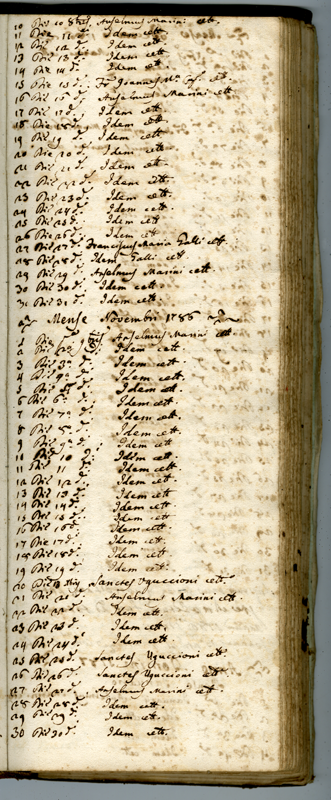 10 Die 10 8bris Anselmus Marini cett.
11 Die 11 d. Idem cett.
12 Die 12 d. Idem cett.
13 Die 13 d. Idem cett.
14 Die 14 d. Idem cett.
15 Die 15 d. Fr. Joannes
16 Die 16 d. Anselmus Marini cett
17 Die 17 d. Idem cett.
18 Die 18 d. Idem cett.
19 Die 19 d. Idem cett.
20 Die 20 d. Idem cett.
21 Die 21 d. Idem cett.
22 Die 22 d. Idem cett.
23 Die 23 d. Idem cett.
24 Die 24 d. Idem cett.
25 Die 25 d. Idem cett
26 Die 26 d. Idem cett
27 Die 27 d. Franciscus Maria Galli cett.
28 Die 28 d. Idem Galli cett
29 Die 29 d. Anselmus Marini cett.
30 Die 30 d. Idem cett.
31 Die 31 d. Idem cett.
Mense Novembri 1786
1 Die 9bris Anselmus Marini cett
2 Die 2 d. Idem cett.
3 Die 3 d. Idem cett.
4 Die 4 d. Idem cett.
5 Die 5 d. Idem cett
6 Die 6 d. Idem cett
7 Die 7 d. Idem cett.
8 Die 8 d. Idem cett.
9 Die 9 d. Idem cett
10 Die 10 d. Idem cett
11 Die 11 d. Idem cett
12 Die 12 d. Idem cett.
13 Die 13 d. Idem cett.
14 Die 14 d. Idem cett.
15 Die 15 d. Idem cett.
16 Die 16 d. Idem cett.
17 Die 17 d. Idem cett.
18 Die 18 d. Idem cett.
19 Die 19 d. Idem cett.
20 Die Sanctes Uguccioni cett.
21 Die 21 d. Anselmus Marini cett.
22 Die 22 d. Idem cett.
23 Die 23 d. Idem cett.
24 Die 24 d. Idem cett.
25 Die Sanctes Uguccioni cett.
26 Die 26 d. Sanctes Uguccioni cett.
27 Die 27 d. Anselmus Marini cett
28 Die 28 d. Idem cett.
29 Die 29 d. Idem cett.
30 Die 30 d. Idem cett.